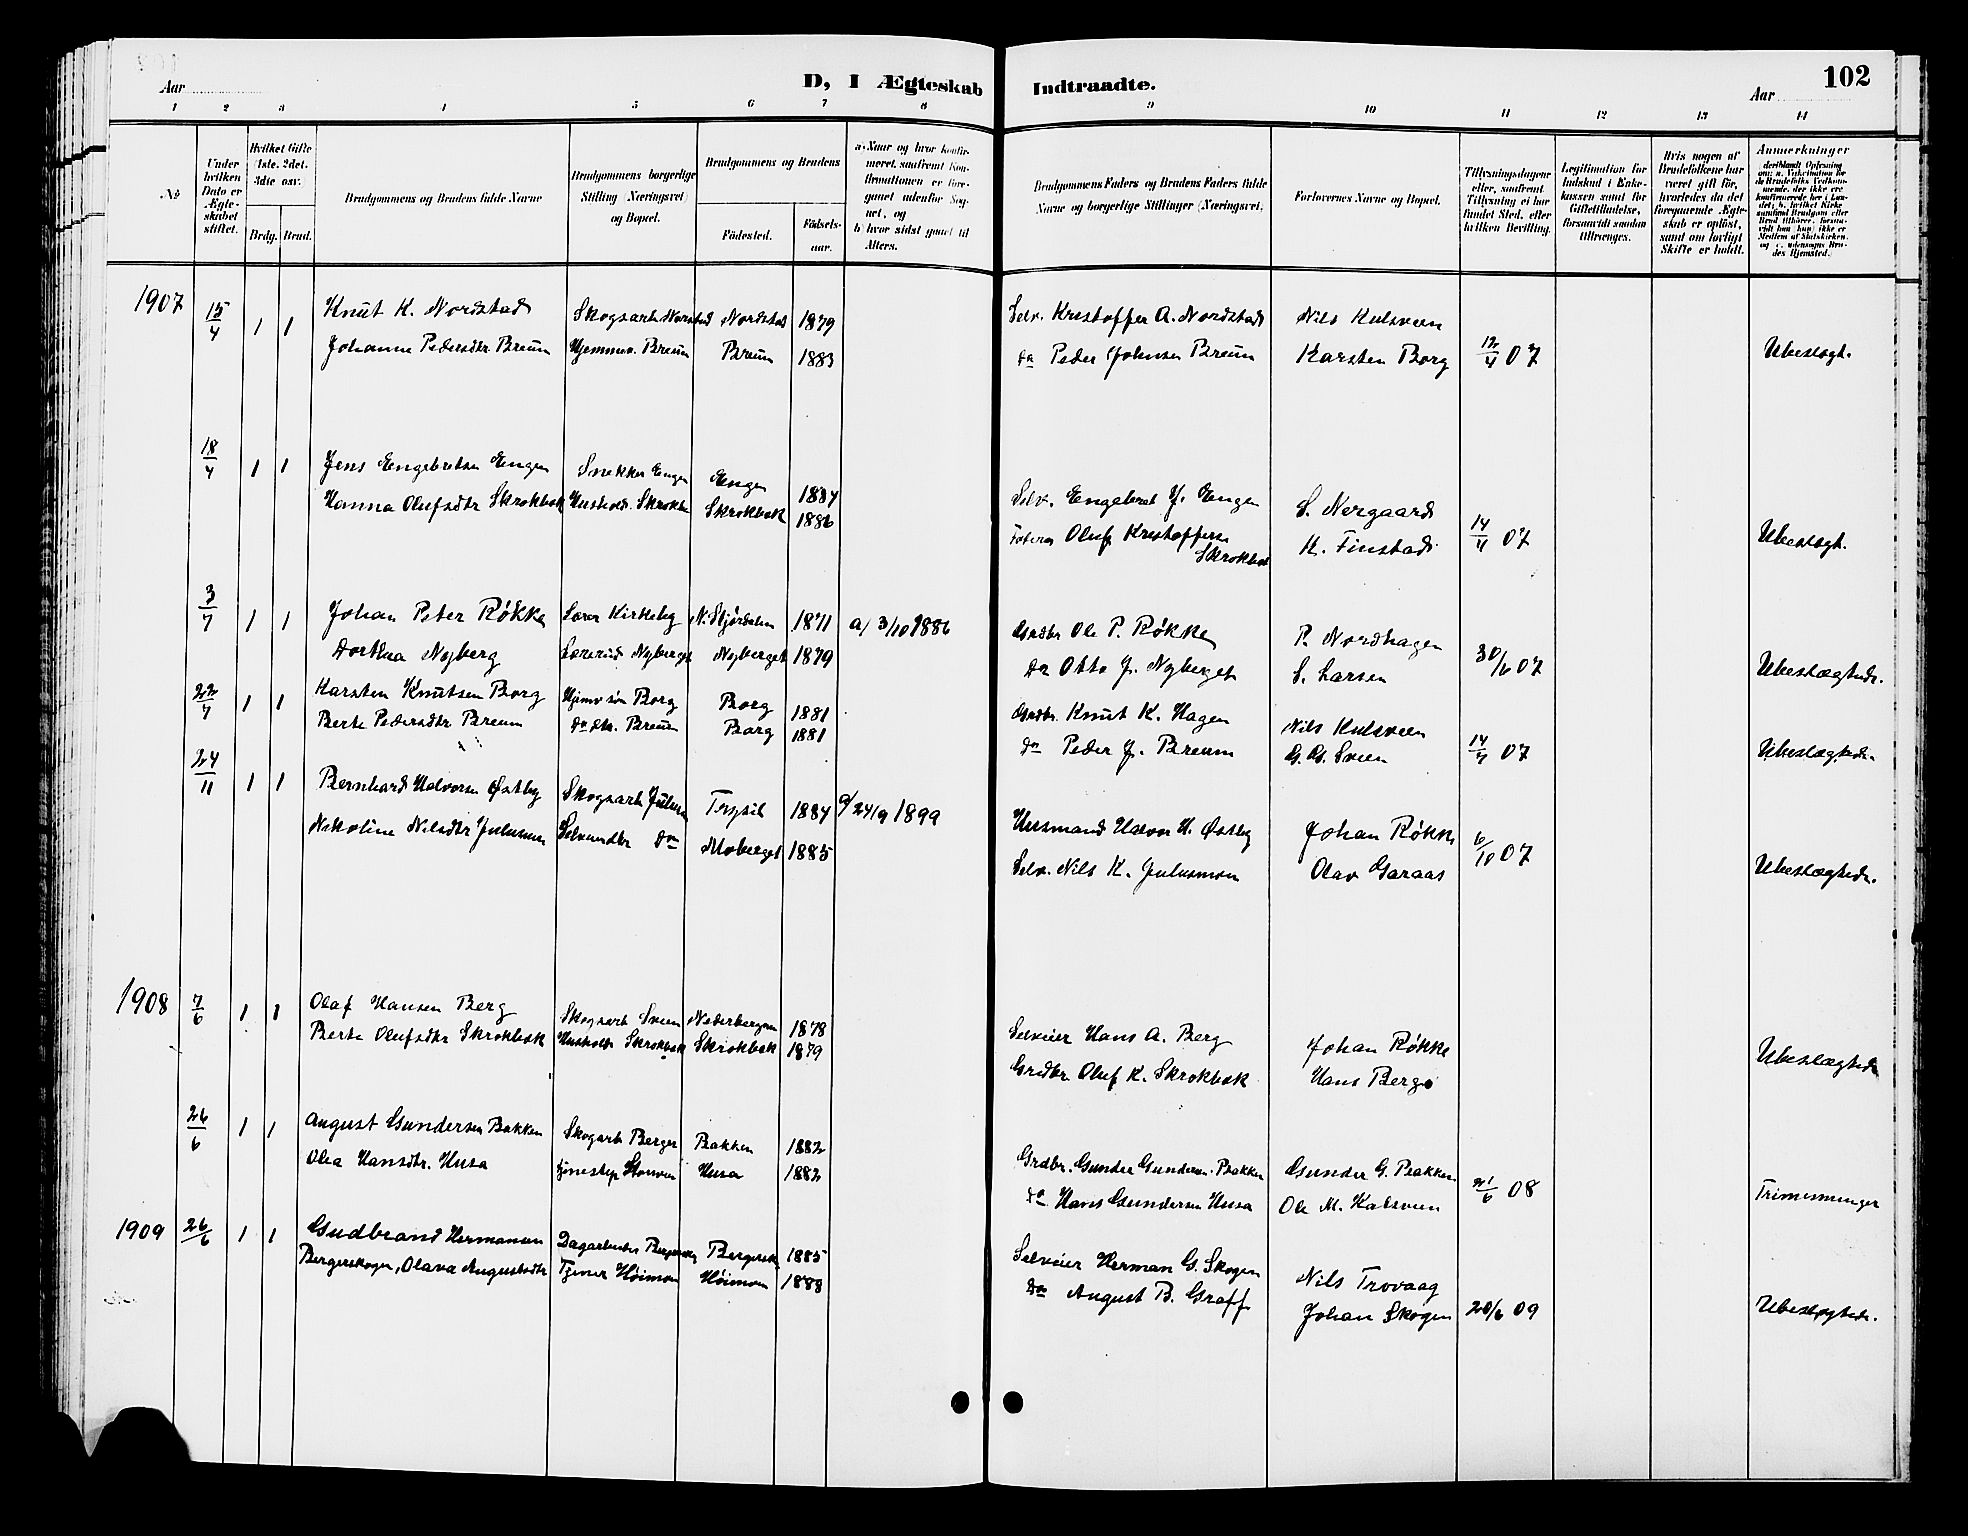 Aar
D, I Ægteskab
Indtraadte.
Aar
102
1 2 3 4 5 6 7 8 9 10 11 12 13 14
No
Under hvilken Dato er Ægteskabet stiftet.
Hvilket Gifte (1ste, 2det, 3die osv.
Brdg. Brud.
Brudgommens og Brudens fulde Navne
Brudgommens borgerlige Stilling (Næringsvei) og Bopæl.
Brudgommens og Brudens
Födested.
Födselsaar.
a) Naar og hvor konfirmeret, saafremt Konfirmationen er foregaaet udenfor Sognet, og
b) hvor sidst gaaet til Alters.
Brudgommens Faders og Brudens Faders fulde Navne og borgerlige Stillinger (Næringsvei)
Forlovernes Navne og Bopæl.
Tillysningsdagene eller, saafremt Tillysning ei har fundet Sted, efter hvilken Bevilling.
Legitimation for Indskud i Enkekassen samt for Giftetilladelse, forsaavidt saadan tiltrænges.
Hvis nogen af Brudefolkene har været gift för, hvorledes da det foregaaende Ægteskab er oplöst, samt om lovligt Skifte er holdt.
Anmerkninger
1907 15/4 1 1 Knut K. Nordstad Skogsarb Norstad Nordstad 1879 Selv. Krestoffer A. Nordstad Nils Kulsveen
Johanne Pedersdtr Breum Hjemmev. Breum Breum 1883 do Peder Johnsen Breum Karsten Borg 12/4 07 Ubeslægt.
18/4 1 1 Jens Engebretsen Engen Snekker Engen Engen 1884 Selv. Engebret J. Engen S. Nergaard
Hanna Olufsdtr Skrokbæk Hushold. Skrokbæk Skrokbæk 1886 Oluf Krestoffersen Skrokbæk K. Finstad 14/4 07 Ubeslægt.
3/7 1 1 Johan Peter Røkke Lærer Kirkeby N. Stjørdalen 1871 a/ 3/10 1886 Grdbr Ole P. Røkke P. Nordhagen
Dorthea Nyberg Lærerind Nyberget Nyberget 1879 do Otto J. Nyberget S. Larsen 30/6 07 Ubeslægtede.
22/7 1 1 Karsten Knutsen Borg Hjemv søn Borg Borg 1881 Grdbr. Knut K. Hagen Nils Kulsveen
Berte Pedersdtr Breum do dtr. Breum Borg 1881 do Peder J. Breum G. G. Sveen 14/7 07 Ubeslægtede.
24/11 1 1 Bernhard Halvorsen Østby Skogsarb Trysil 1884 a/ 24/9 1899 Husmand Halvor H. Østby Johan Røkke
Nikoline Nilsdtr Julusmoen do Moberget 1885 Selv. Nils K. Julusmoen Olav Garaas 6/10 07 Ubeslægtede.
1908 7/6 1 1 Olaf Hansen Berg Skogsarb Sveen Nederbergum 1878 Selveier Hans A. Berg Johan Røkke
Berte Olufsdtr Skrokbæk Hushold. Skrokbæk Skrokbæk 1879 Grdbr. Oluf K. Skrokbæk Hans Berg Ubeslægtede
26/6 1 1 August Gundersen Bakken Skogarb Berger Bakken 1882 Grdbr. Gunder Gundersen Bakken Gunder G. Bakken
Olia Hansdtr. Husa Husa 1882 do Hans Gundersen Husa Ole M. Kulsveen 21/6 08 Trimenninger
1909 26/6 1 1 Gudbrand Hermansen Dagarbeider Bergerskog 1885 Selveier Herman G. Skogen Nils Trovaag
Bergerskogen, Olava Augustsdtr Tjener Høimoen Høimoen 1888 do August B. Graff Johan Skogen 20/6 09 Ubeslægtede.